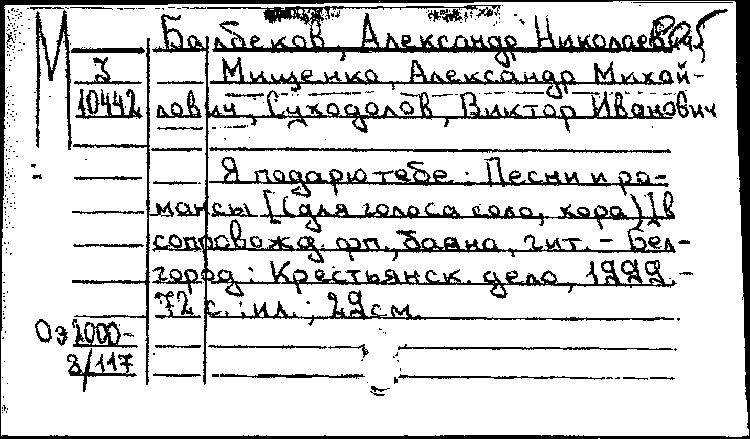 М
Балбеков, Александр Николаевич
З
Мищенко, Александр Михай-
10442
лович, Суходолов, Виктор Иванович
Я подарю тебе : Песни и ро-
мансы [(для голоса соло, хора)] в
сопровожд. фп., баяна, гит. - Бел-
город : Крестьянск. дело, 1999.-
72 с. : ил. ; 29 см.
Оэ 2000-
8/117